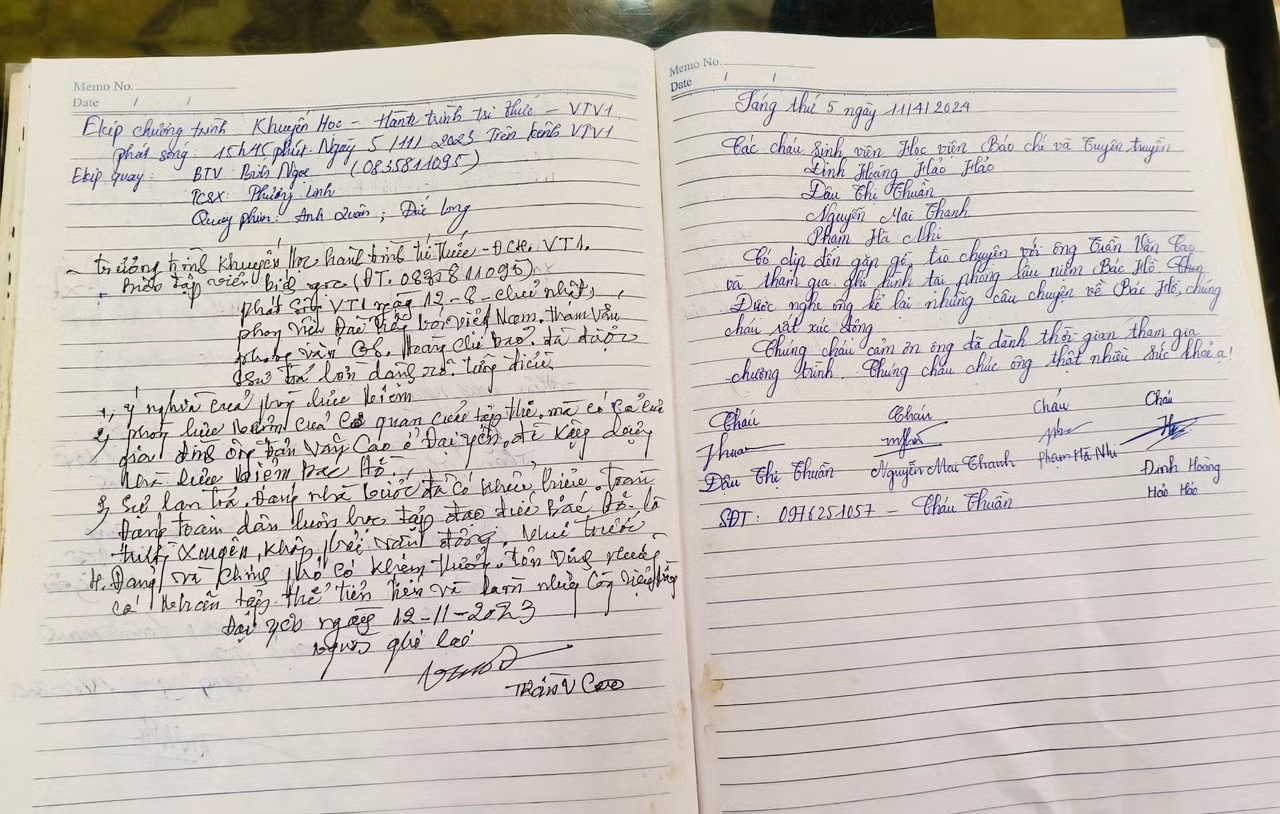 Memo No.
Date / /
Ekip chương trình Khuyến Học – Hành trình tri thức – VTV1
phát sóng: 15h45 phút. Ngày 5/11/2023 Trên kênh VTV1
Ekip quay: BTV Bích Ngọc (0835811095)
TCSX: Phương Linh
Quay phim: Anh Quân; Đức Long
- trương trình khuyến học hành trình tri thức - VT1.
Biên tập viên bích ngọc (ĐT. 0835811095)
phát sóng VT1 ngày 12-8- chủ nhật,
phóng viên Đài việt Nam. tham vấn
phỏng vấn Hoàng chí bảo. đã được
từng điều.
1, ý nghĩa của phòng lưu niệm
2, phòng lưu niệm của cơ quan của tập thể, mà có cả của
gia đình ông trần văn Cao ở Đại yên, để xây dựng
nhà lưu niệm bác Hồ.
3, Sự lan tỏa. Đảng nhà nước đã có toàn
Đảng toàn dân luôn học tập đạo đức Bác Hồ. là
thường xuyên, khắp,
4. Đảng và chính phủ có khen thưởng. tôn vinh những
cá nhân tập thể tiên tiến và làm những công việc
Đại yên ngày 12-11-2023
người ghi
Trần V Cao
Memo No.
Date / /
Sáng thứ 5 ngày 11/4/2024
Các cháu sinh viên Học viện Báo chí và Tuyên truyền
Đinh Hoàng Hảo Hảo
Dậu Thị Thuần
Nguyễn Mai Thanh
Phạm Hà Nhi
Có dịp đến gặp gỡ, trò chuyện với ông Trần Văn Cao
và tham gia ghi hình tại phòng lưu niệm Bác Hồ.
Được nghe ông kể lại những câu chuyện về Bác Hồ, chúng
cháu rất xúc động
Chúng cháu cảm ơn ông đã dành thời gian tham gia
chương trình. Chúng cháu chúc ông thật nhiều sức khoẻ ạ!
Cháu Cháu Cháu Cháu
Thuần
Dậu Thị Thuần Nguyễn Mai Thanh Phạm Hà Nhi Đinh Hoàng
Hảo Hảo
SĐT: 0976251057 – Cháu Thuần